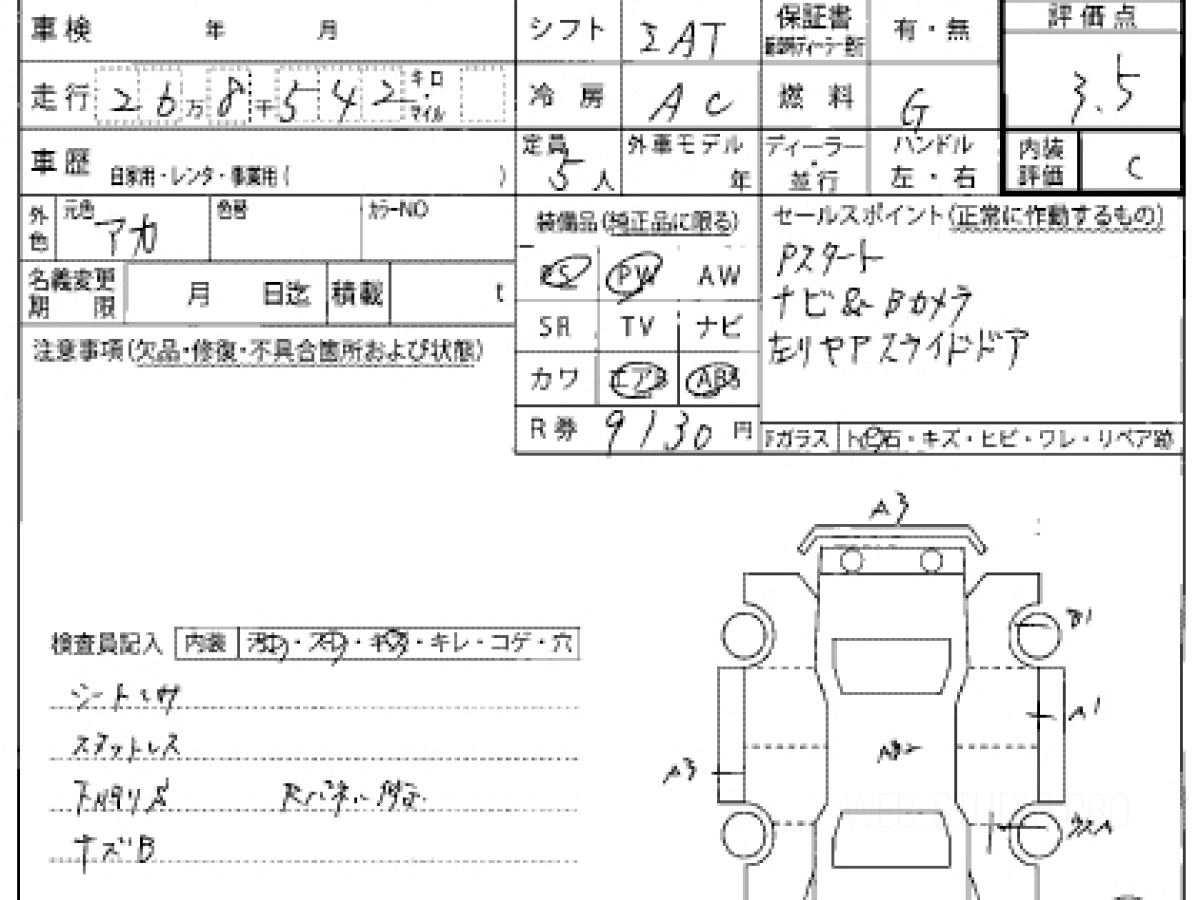 車検 年 月 シフト AT 保証書 有・無 評価点
走行 26万8千542 キロ・マイル 冷房 AC 燃料 G 3.5
車歴 自家用・レンタ・事業用( ) 定員 5人 外車モデル 年 ディーラー・並行 ハンドル 左・右 内装評価 C
外色 元色 アカ 色番 カラーNO 装備品(純正品に限る) セールスポイント(正常に作動するもの)
PS PW AW Pスタート
名義変更期限 月 日迄 積載 t ナビ&Bカメラ
SR TV ナビ 左リヤアスライドドア
注意事項(欠品・修復・不具合箇所および状態)
カワ エアB ABS
R券 9130円 Fガラス 石・キズ・ヒビ・ワレ・リペア跡
A3
検査員記入 内装 ・キレ・コゲ・穴
A1
スタットレス
A3
キズB
WEB-STUDIO PRO